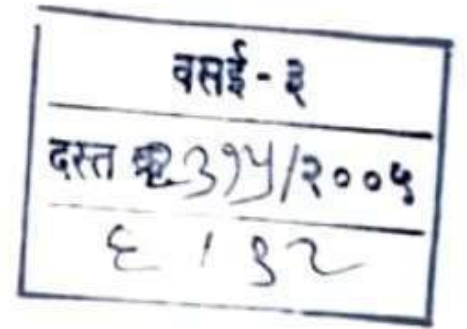 वसई - ३
दस्त क्र. २३१५/२००५
६ / ३२